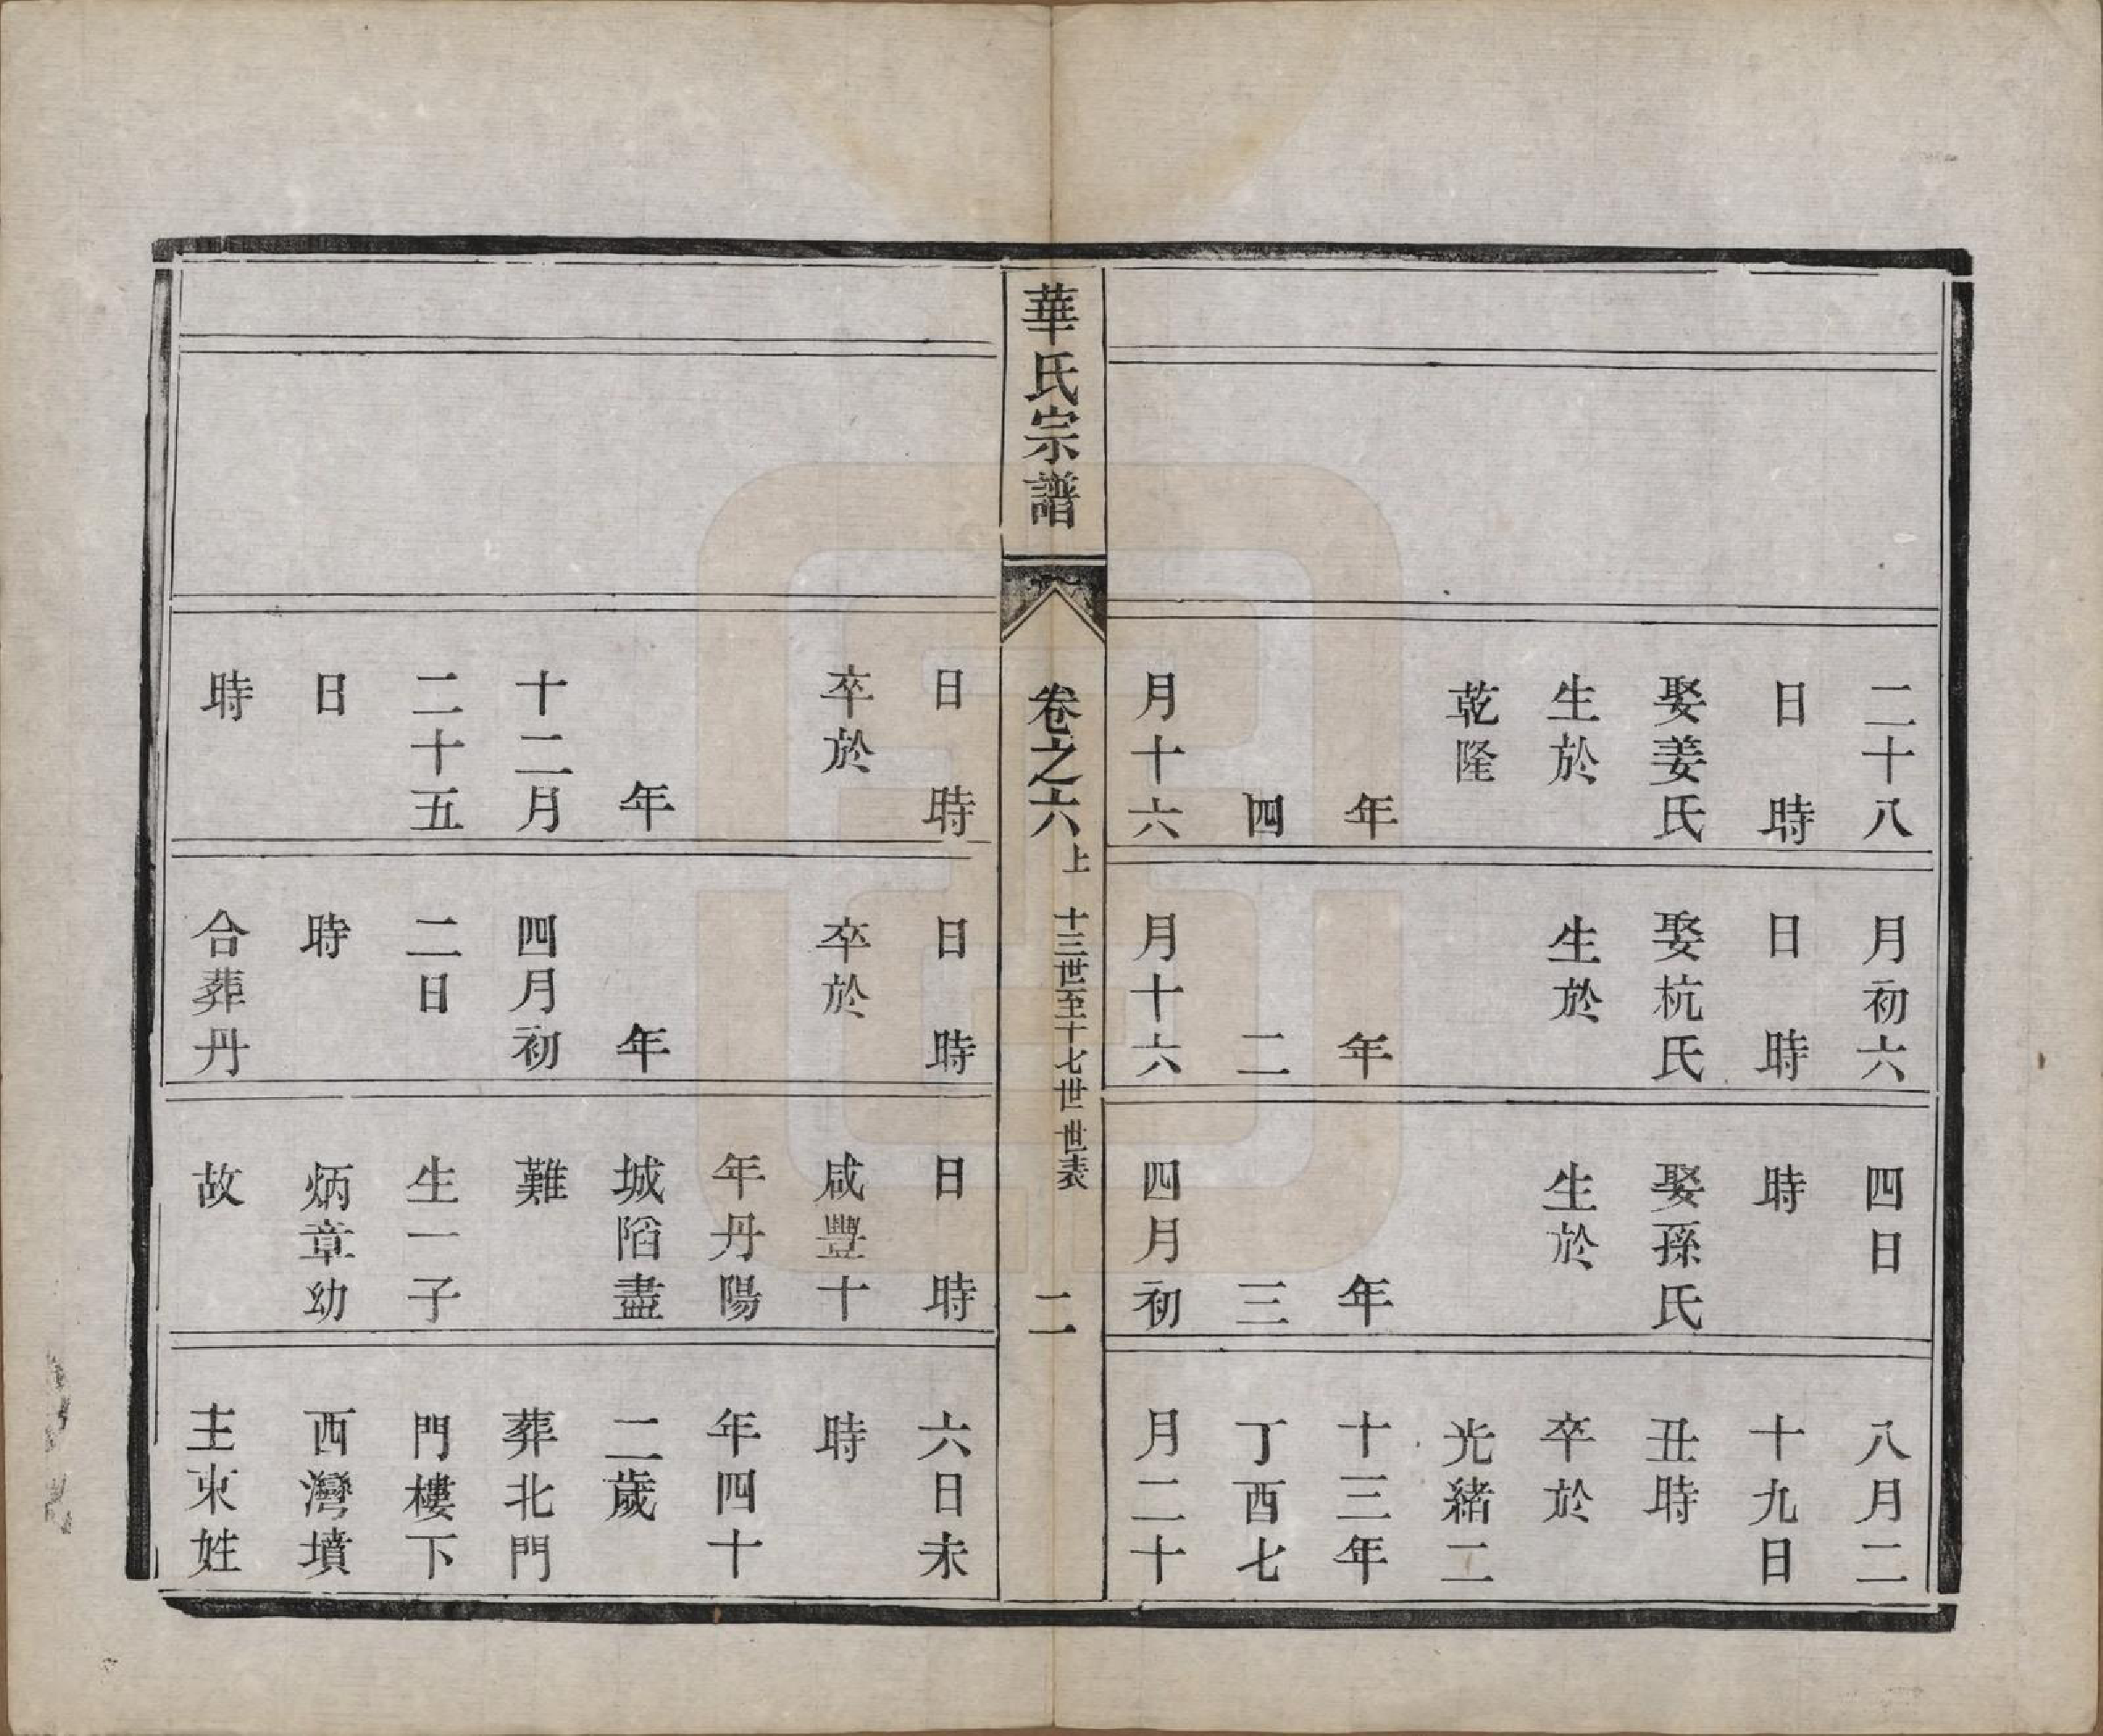 二十八
日　時
娶姜氏
生於
乾隆
年
四
月十六
月初六
日　時
娶杭氏
生於
年
二
月十六
四日
時
娶孫氏
生於
年
三
四月初
八月二
十九日
丑時
卒於
光緒二
十三年
丁酉七
月二十
華氏宗譜
卷之六上　十三世至十七世　世表
二
日　時
卒於
年
十二月
二十五
日
時
日　時
卒於
年
四月初
二日
時
合葬丹
日　時
咸豐十
年丹陽
城陷盡
難
生一子
炳章幼
故
六日未
時
年四十
二歲
葬北門
門樓下
西灣墳
主束姓